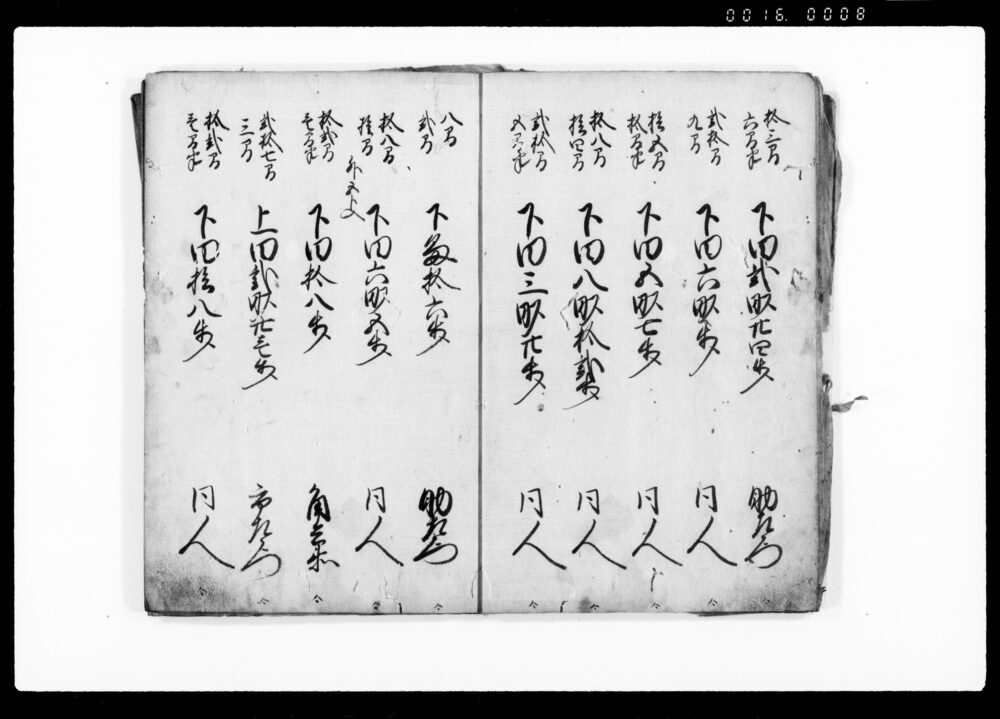 0016. 0008
拾三間
六間半
下田弐畝廿四歩 助左衛門
弐拾間
九間
下田六畝歩 同人
拾五間
拾間半
下田五畝七歩 同人
拾八間
拾四間
下田八畝拾弐歩 同人
弐拾間
五間半
下田三畝廿歩 同人
八間
弐間
下畠拾六歩 助左衛門
拾八間
拾間
外五歩
下田六畝五歩 同人
拾弐間
壱間半
下田拾八歩
弐拾七間
三間
上田弐畝廿壱歩 市左衛門
拾弐間
壱間半
下田拾八歩 同人